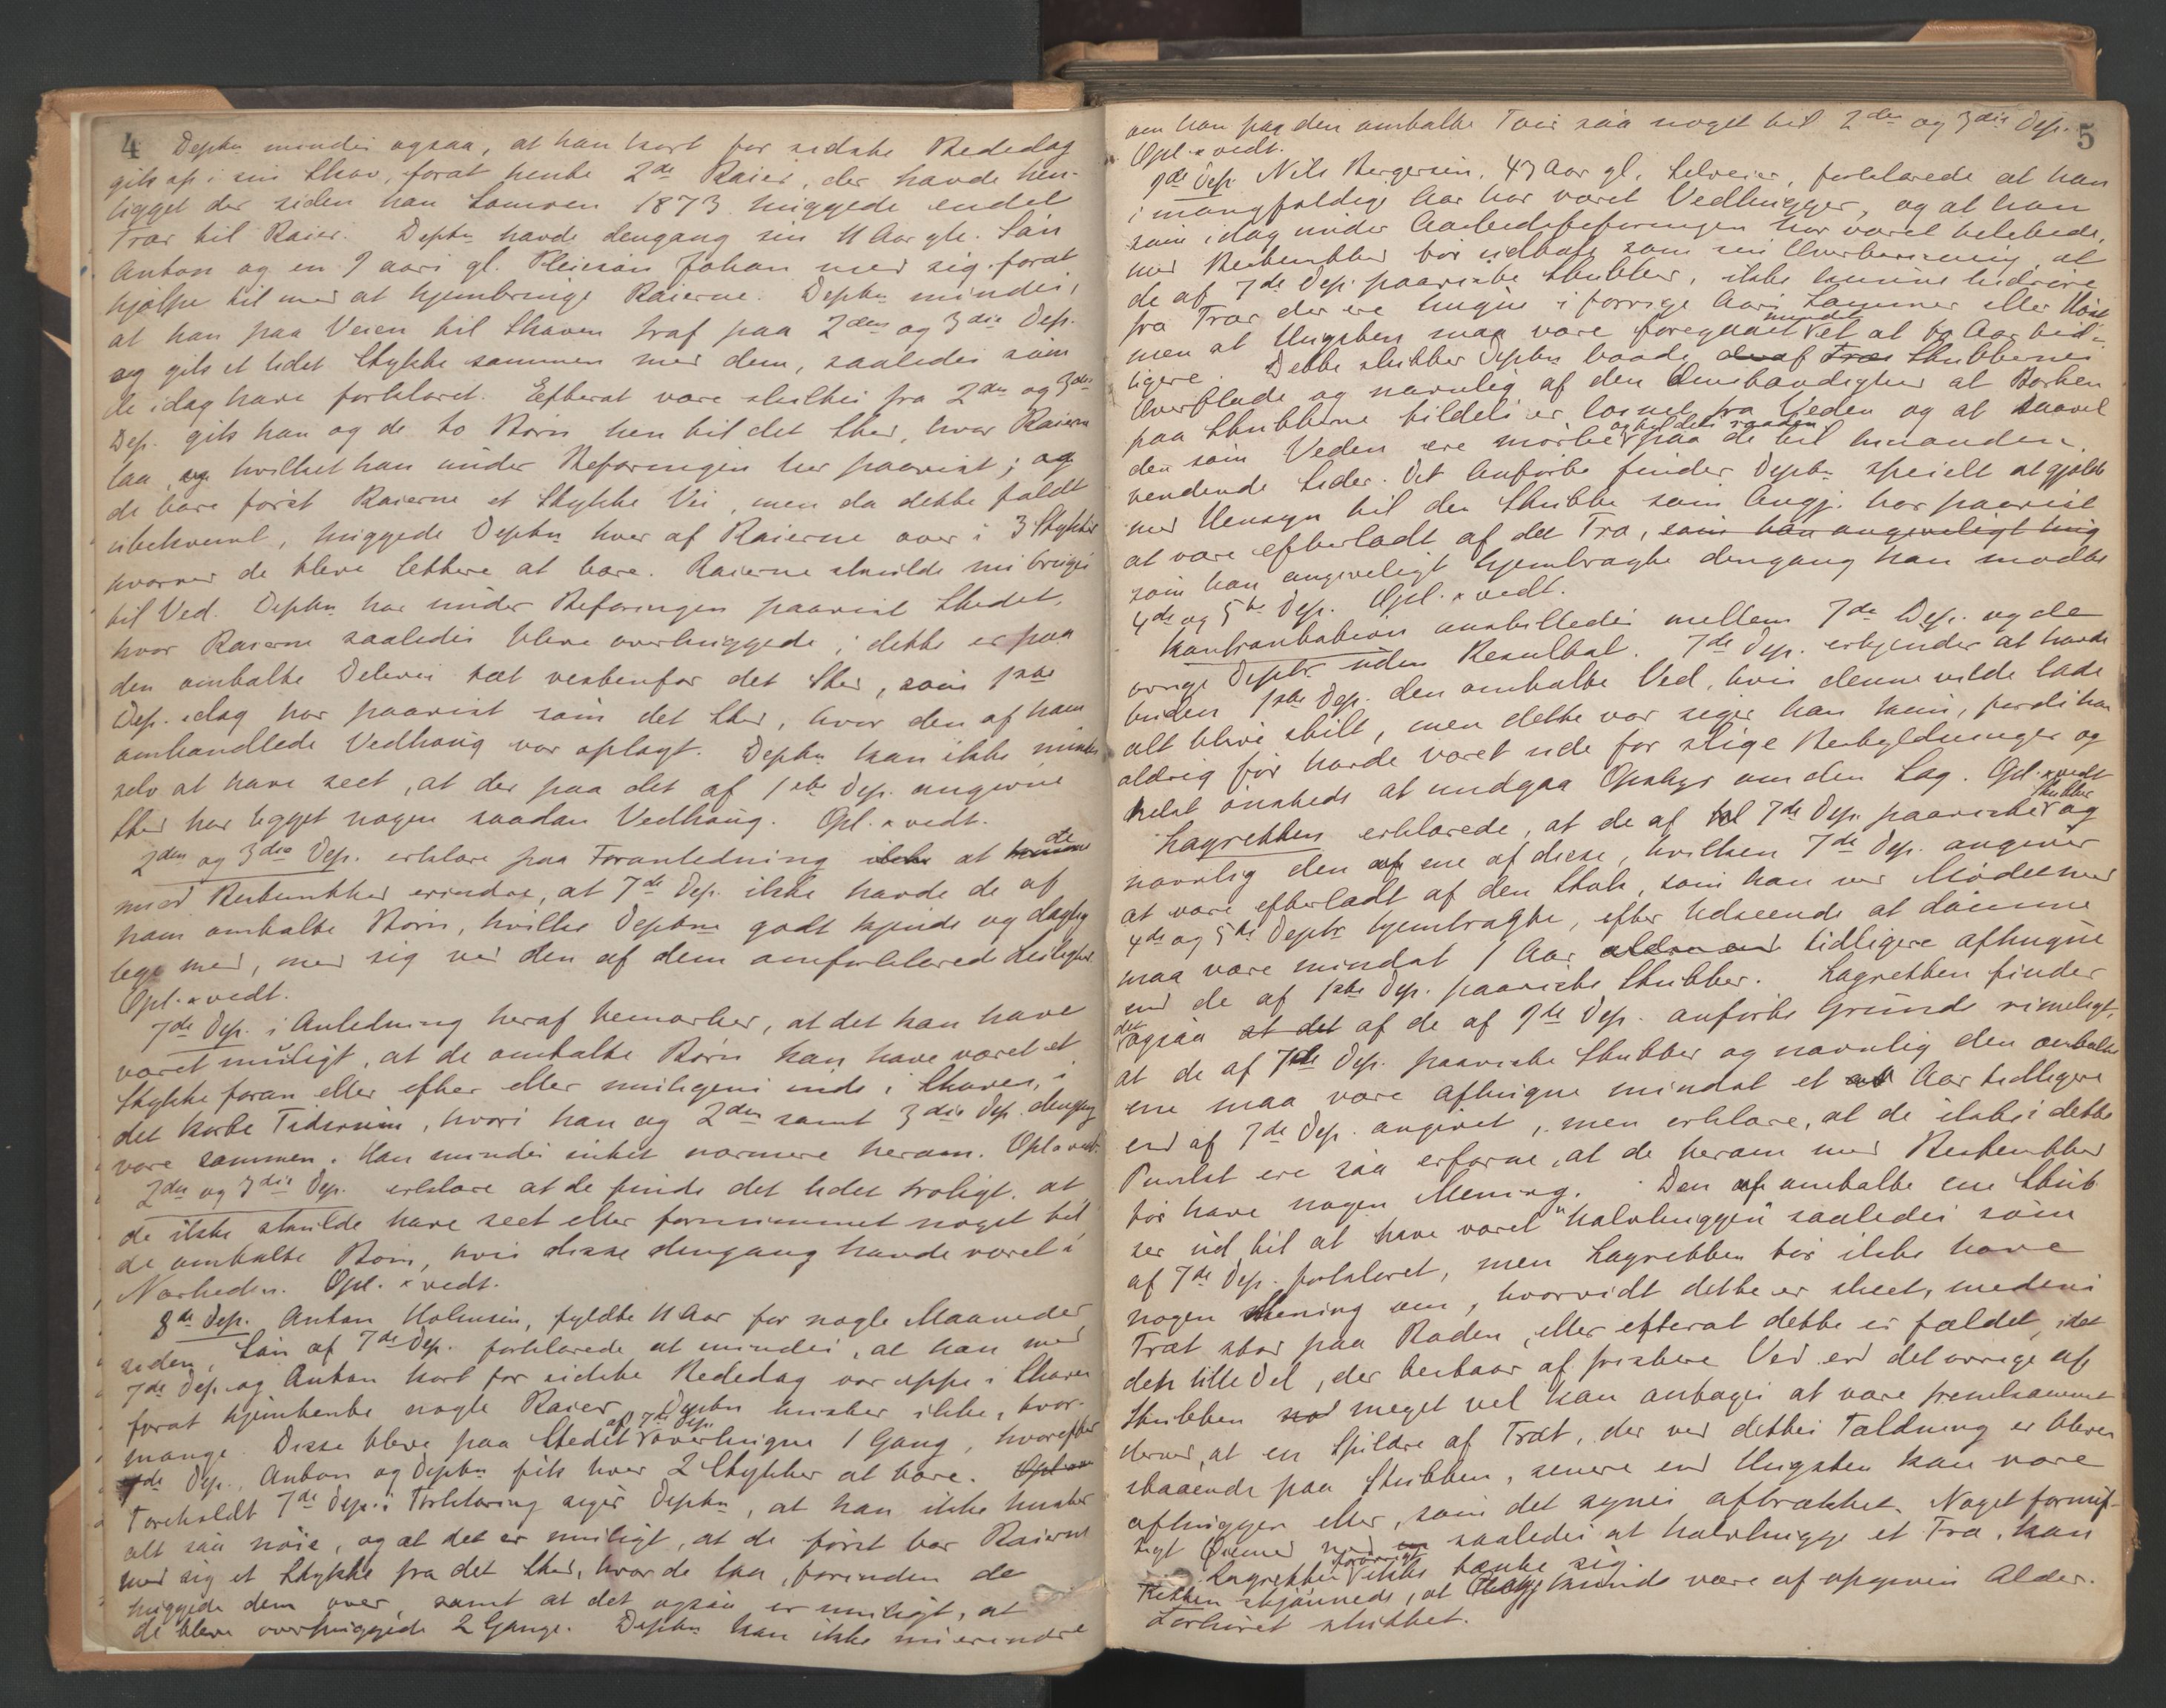 4
Deptn mindes ogsaa, at han kort før sidste Bededag
gik op i sin Skov, forat hente 2de Raier, der havde hen-
ligget der siden han Somren 1873 huggede endel
Træer til Raier. Deptn havde dengang sin 11 Aar gle. Søn
Anton og en 9 aars gl. Pleiesøn Johan med sig forat
hjælpe til med at hjembringe Raierne. Deptn mindes,
at han paa Veien til Skoven traf paa 2den og 3die Dep.
og gik et lidet Stykke sammen med dem, saaledes som
de idag have forklaret. Efterat være skiltes fra 2den og 3die
Dep. gik han og de to Børn hen til det Sted, hvor Raierne
laa og hvilket han under Befaringen her paavist; og
de bare først Raierne et Stykke Vei, men da dette faldt
ubekvemt, huggede Deptn hver af Raierne over i 3 Stykker
hvorved de bleve lettere at bære. Raierne skulde nu bruges
til Ved. Deptn har under Befaringen paavist Stedet,
hvor Raierne saaledes bleve overhuggede; dette er paa
den omtalte Delevei tæt vestenfor det Sted, som 1ste
Dep. idag har paavist som det Sted, hvor den af ham
omhandlede Vedhaug var oplagt. Deptn kan ikke mindes
selv at have seet, at der paa det af 1ste Dep. angivne
Sted har ligget nogen saadan Vedhaug. Opl. & vedt.
2den og 3die Dep. erklære paa Foranledning ikke at kunne de
med Bestemthed erindre, at 7de Dep. ikke havde de af
ham omtalte Børn, hvilke Deptne godt kjende og daglig
lege med, med sig ved den af dem omforklarede Leilighed.
Opl. & vedt.
7de Dep. i Anledning heraf bemærker, at det kan have
været muligt, at de omtalte Børn kan have været et
Stykke foran eller efter eller muligens inde i Skoven, i
det korte Tidsrum, hvori han og 2den samt 3die Dep. dengang
vare sammen. Han mindes intet nærmere herom. Opl. & vedt.
2den og 3die Dep. erklære at de finde det lidet troligt, at
de ikke skulde have seet eller fornummet noget til
de omtalte Børn, hvis disse dengang havde været i
Nærheden. Opl. & vedt.
8de Dep. Anton Holmsen, fyldte 11 Aar for nogle Maaneder
siden, Søn af 7de Dep. forklarede at mindes, at han med
7de Dep. og Anton kort før sidste Bededag var oppe i Skoven
forat hjemhente nogle Raier. Deptn husker ikke, hvor-
mange. Disse bleve paa Stedet af 7de Dep. overhugne 1 Gang, hvorefter
7de Dep., Anton og Deptn fik hver 2 Stykker at bære. Opl. &
Foreholdt 7de Dep.s Forklaring siger Deptn, at han ikke husker
alt saa nøie, og at det er muligt, at de først bar Raierne
med sig et Stykke fra det Sted, hvor de laa, forinden de
huggede dem over, samt at det ogsaa er muligt, at
de bleve overhuggede 2 Gange. Deptn kan ikke nu erindre
5
om han paa den omtalte Tour saa noget til 2den og 3die Dep.
Opl. & vedt.
9de Dep. Nils Bergersen, 47 Aar gl., Selveier, forklarede at han
i mangfoldige Aar har været Vedhugger, og at han
som idag under Aastedsbefaringen har været tilstede,
med Bestemthed tør udtale som sin Overbevisning at
de af 7de Dep. paaviste Stubber, ikke kunne hidrøre
fra Træer der ere hugne i forrige Aars Sommer eller Høst
men at Hugsten maa være foregaaet mindst et at to Aar tid-
ligere. Dette slutter Deptn baade af Stubbernes
Overflade og navnlig af den Omstændighed at Barken
paa Stubberne tildels er løsnet fra Veden og at saavel
den som Veden ere mørke og tildels raadne paa de til hinanden
vendende Sider. Det Anførte finder Deptn specielt at gjælde
med Hensyn til den Stubbe som Angj. har paavist
at være efterladt af det Træ, som han angiveligt hug
som han angiveligt hjembragte dengang han mødte
4de og 5te Dep. Opl. & vedt.
Konfrontation anstilledes mellem 7de Dep. og de
øvrige Deptr uden Resultat. 7de Dep. erkjender at havde
buden 1ste Dep. den omtalte Ved, hvis denne vilde lade
alt blive stilt, men dette var siger han kun, fordi han
aldrig før havde været ude for slige Beskyldninger og
helst ønskede at undgaa Opstyr om den Sag. Opl. & vedt
Lagretten erklærede, at de af 7de Dep. paaviste Stubber og
navnlig den ene af disse, hvilken 7de Dep. angiver
at være efterladt af den Stok, som han ved Mødet med
4de og 5te Deptr hjembragte, efter Udseende at dømme
maa være mindst 1 Aar ældre end tidligere afhugne
end de af 1ste Dep. paaviste Stubber. Lagretten finder
det ogsaa at det af de af 9de Dep. anførte Grunde rimeligt,
at de af 7de Dep. paaviste Stubber og navnlig den omtalte
ene maa være afhugne mindst et Aar tidligere
end af 7de Dep. angivet, men erklære, at de ikke i dette
Punkt ere saa erfarne, at de herom med Bestemthed
tør have nogen Mening. Den omtalte ene Stub
ser ud til at have været "halvhuggen" saaledes som
af 7de Dep. forklaret, men Lagretten tør ikke have
nogen Mening om, hvorvidt dette er skeet, medens
Træt stod paa Roden, eller efterat dette er fældet, idet
den lille Del, der bestaar af friskere Ved end det øvrige af
Stubben meget vel kan antages at være fremkommet
derved, at en Spildre af Træt, der ved dettes Fældning er bleven
staaende paa Stubben, senere end Hugsten kan være
afhuggen eller, som det synes afbrækket. Noget fornuf-
tigt Øiemed med saaledes at halvhugge et Træ, kan
Lagretten forøvrigt ikke tænke sig.
Retten skjønnede, at kunde være af opgiven Alder.
Forhøret sluttet.